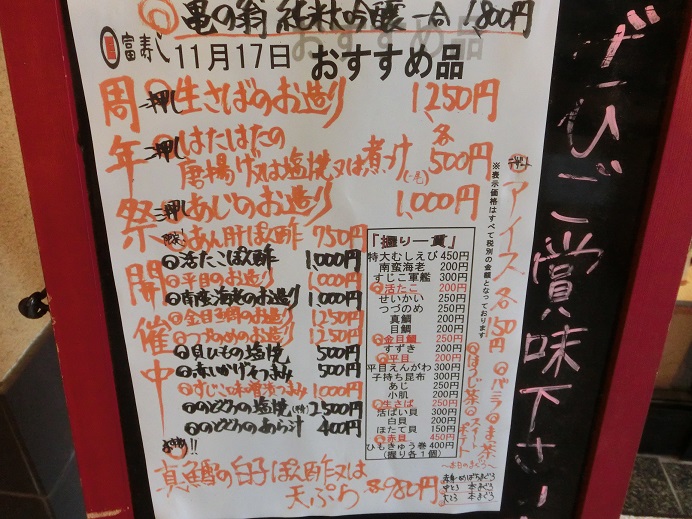 亀の翁 純米大吟醸 一合 1,800円
富寿し
11月17日 おすすめ品
周年祭開催中
一押し 生さばのお造り 1,250円
二押し はたはたの
唐揚げ又は塩焼又は煮つけ 各500円
三押し あじのお造り 1,000円
あん肝ぽん酢 750円
活たこぽん酢 1,000円
平目のお造り 1,000円
南蛮海老のお造り 1,000円
金目鯛のお造り 1,250円
つぶ貝のお造り 1,250円
貝ひもの塩焼 500円
赤いかげそつまみ 500円
すじこ味噌漬つまみ 1,000円
のどぐろの塩焼 2,500円
のどぐろのあら汁 400円
真鱈の白子ぽん酢又は
天ぷら 各980円
「握り一貫」
特大むしえび 450円
南蛮海老 200円
すじこ軍艦 300円
活たこ 200円
せいかい 250円
つづのめ 200円
真鯛 200円
目鯛 200円
金目鯛 250円
すずき 200円
平目 200円
平目えんがわ 300円
子持ち昆布 300円
あじ 250円
小肌 200円
生さば 250円
活ばい貝 300円
白貝 200円
ほたて貝 150円
赤貝 450円
ひもきゅう巻 400円
(握り各1個)
※表示価格はすべて税別の金額となっております
アイス 各150円
バニラ
まっ茶
ほうじ茶
スイートポテト
〜本日のまぐろ〜
中とろ 本まぐろ
大とろ 本まぐろ
ぜひご賞味下さい